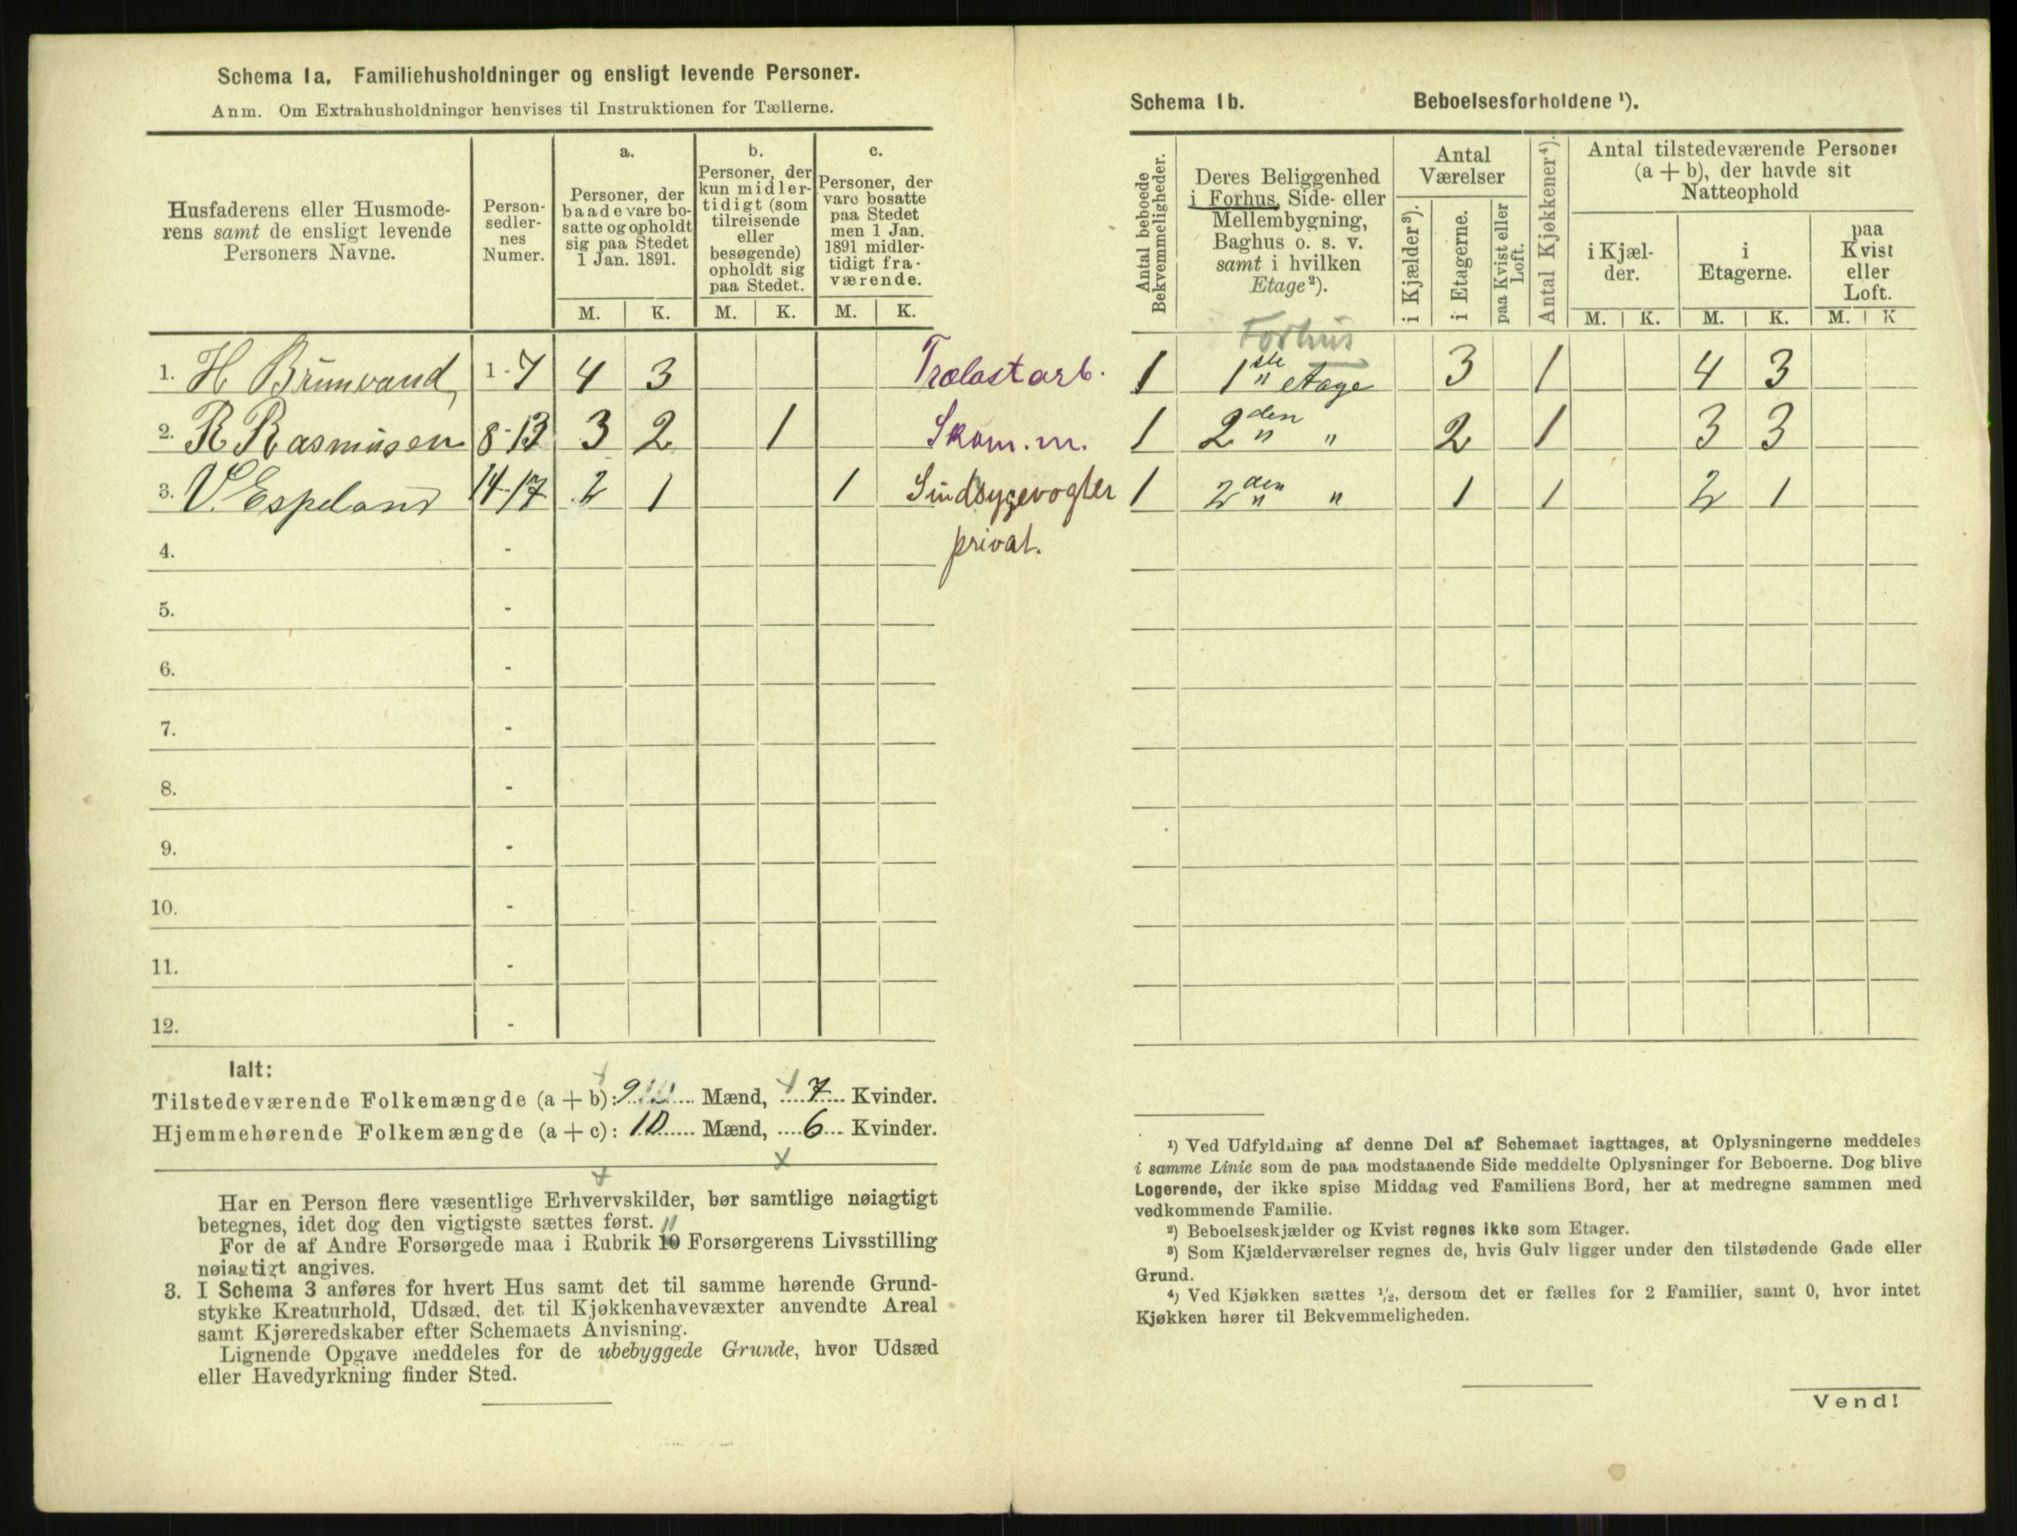 Schema 1a. Familiehusholdninger og ensligt levende Personer.
Anm. Om Extrahusholdninger henvises til Instruktionen for Tællerne.
Husfaderens eller Husmode-
rens samt de ensligt levende
Personers Navne.
Person-
sedler-
nes
Numer.
a.
Personer, der
baade vare bo-
satte og opholdt
sig paa Stedet
1 Jan. 1891.
b.
Personer, der
kun midler-
tidigt (som
tilreisende
eller
besøgende)
opholdt sig
paa Stedet.
c.
Personer, der
vare bosatte
paa Stedet
men 1 Jan.
1891 midler-
tidigt fra-
værende.
M. K. M. K. M. K.
1. H Brunvand, 1-7 4 3 Trælastarb.
2. R Rasmusen 8-13 3 2 1 Skom. m.
3. V. Espeland 14-17 2 1 1 Sindsygevogter
privat.
4. -
5. -
6. -
7. -
8. -
9. -
10. -
11. -
12. -
Ialt:
Tilstedeværende Folkemængde (a + b): 9 Mænd, 7 Kvinder.
Hjemmehørende Folkemængde (a + c): 10 Mænd, 6 Kvinder.
Har en Person flere væsentlige Erhvervskilder, bør samtlige nøiagtigt
betegnes, idet dog den vigtigste sættes først.
11
For de af Andre Forsørgede maa i Rubrik 10 Forsørgerens Livsstilling
nøiagtigt angives.
3. I Schema 3 anføres for hvert Hus samt det til samme hørende Grund-
stykke Kreaturhold, Udsæd, det til Kjøkkenhavevæxter anvendte Areal
samt Kjøreredskaber efter Schemaets Anvisning.
Lignende Opgave meddeles for de ubebyggede Grunde, hvor Udsæd
eller Havedyrkning finder Sted.
Schema 1b. Beboelsesforholdene ¹).
Antal beboede
Bekvemmeligheder.
Deres Beliggenhed
i Forhus, Side- eller
Mellembygning,
Baghus o. s. v.
samt i hvilken
Etage²).
Antal
Værelser
i Kjælder³).
i Etagerne.
paa Kvist eller
Loft.
Antal Kjøkkener⁴).
Antal tilstedeværende Personer
(a + b), der havde sit
Natteophold
i Kjæl-
der.
i
Etagerne.
paa
Kvist
eller
Loft.
M. K. M. K. M. K
Forhus
1 1ste " Etage 3 1 4 3
1 2den " " 2 1 3 3
1 2den " " 1 1 2 1
¹) Ved Udfyldning af denne Del af Schemaet iagttages, at Oplysningerne meddeles
i samme Linie som de paa modstaaende Side meddelte Oplysninger for Beboerne. Dog blive
Logerende, der ikke spise Middag ved Familiens Bord, her at medregne sammen med
vedkommende Familie.
²) Beboelseskjælder og Kvist regnes ikke som Etager.
³) Som Kjælderværelser regnes de, hvis Gulv ligger under den tilstødende Gade eller
Grund.
⁴) Ved Kjøkken sættes ½, dersom det er fælles for 2 Familier, samt 0, hvor intet
Kjøkken hører til Bekvemmeligheden.
Vend!